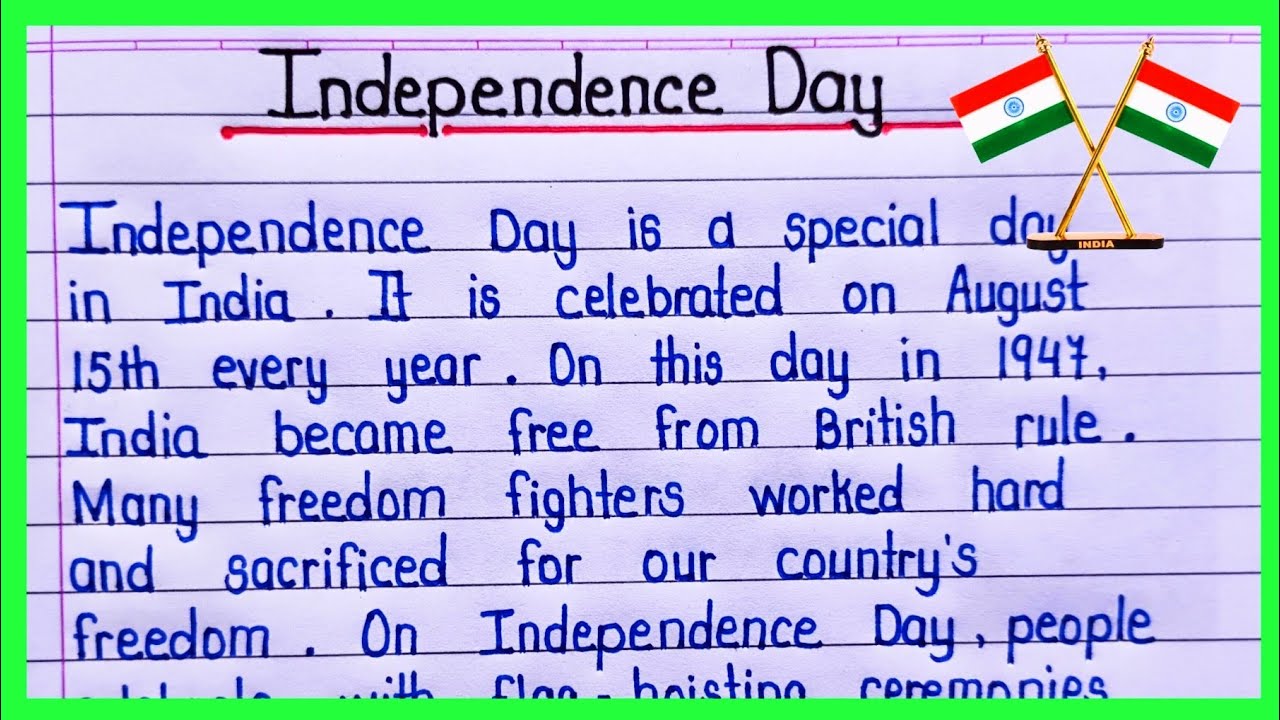 Independence Day
INDIA
Independence Day is a special day
in India. It is celebrated on August
15th every year. On this day in 1947,
India became free from British rule.
Many freedom fighters worked hard
and sacrificed for our country's
freedom. On Independence Day, people
celebrate with flag-hoisting ceremonies